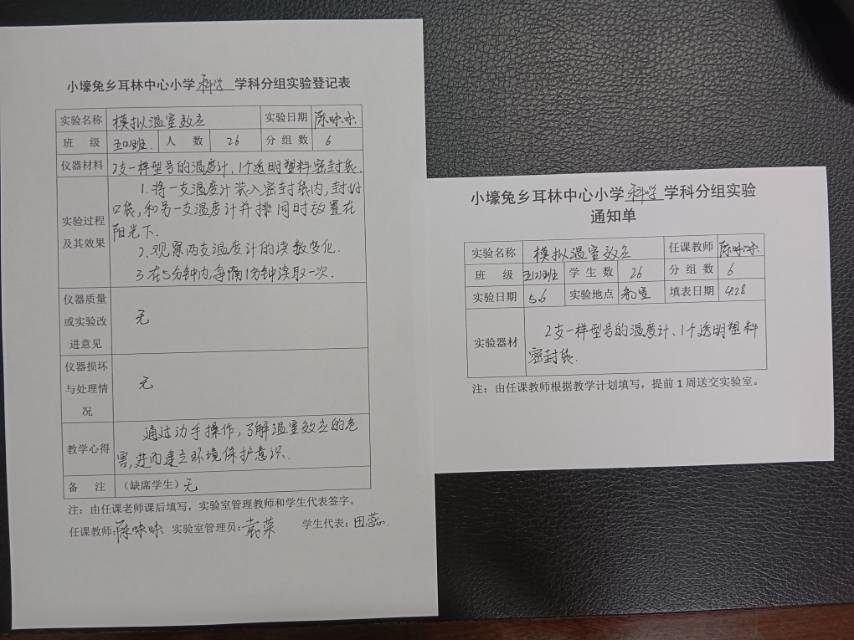 小壕兔乡耳林中心小学 科学 学科分组实验登记表
实验名称 模拟温室效应 实验日期 陈咪咪
班 级 五(2)班 人 数 26 分 组 数 6
仪器材料 2支一样型号的温度计、1个透明塑料密封袋.
实验过程及其效果
1.将一支温度计装入密封袋内,封好
口袋,和另一支温度计并排同时放置在
阳光下.
2.观察两支温度计的读数变化.
3.在5分钟内,每隔1分钟读取一次.
仪器质量或实验改进意见 无
仪器损坏与处理情况 无
教学心得
通过动手操作,了解温室效应的危
害,进而建立环境保护意识.
备 注 (缺席学生)无
注:由任课老师课后填写,实验室管理教师和学生代表签字。
任课教师:陈咪咪 实验室管理员: 学生代表:田蕊.
小壕兔乡耳林中心小学 科学 学科分组实验
通知单
实验名称 模拟温室效应 任课教师 陈咪咪.
班 级 五(2)班 学 生 数 26 分 组 数 6
实验日期 5.6 实验地点 教室 填表日期 4.28
实验器材
2支一样型号的温度计、1个透明塑料
密封袋.
注:由任课教师根据教学计划填写,提前 1 周送交实验室。